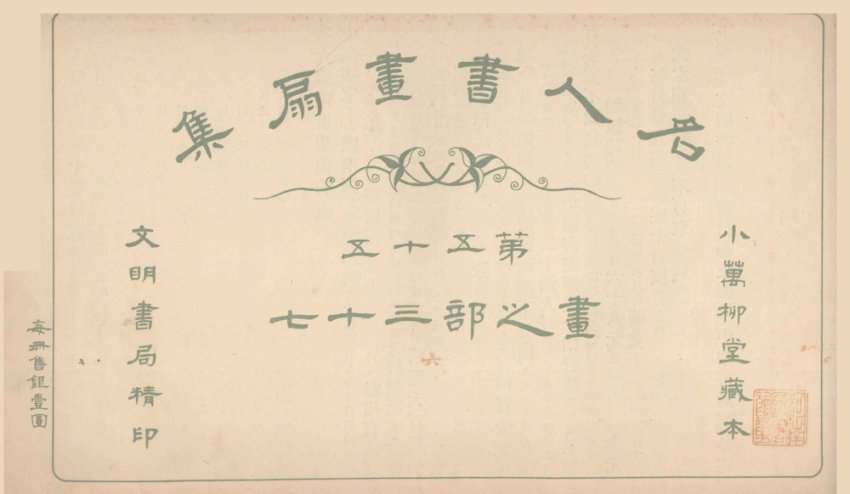 名人書畫扇集
第五十五
畫之部三十七
六
小萬柳堂藏本
文明書局精印
每冊售銀壹圓